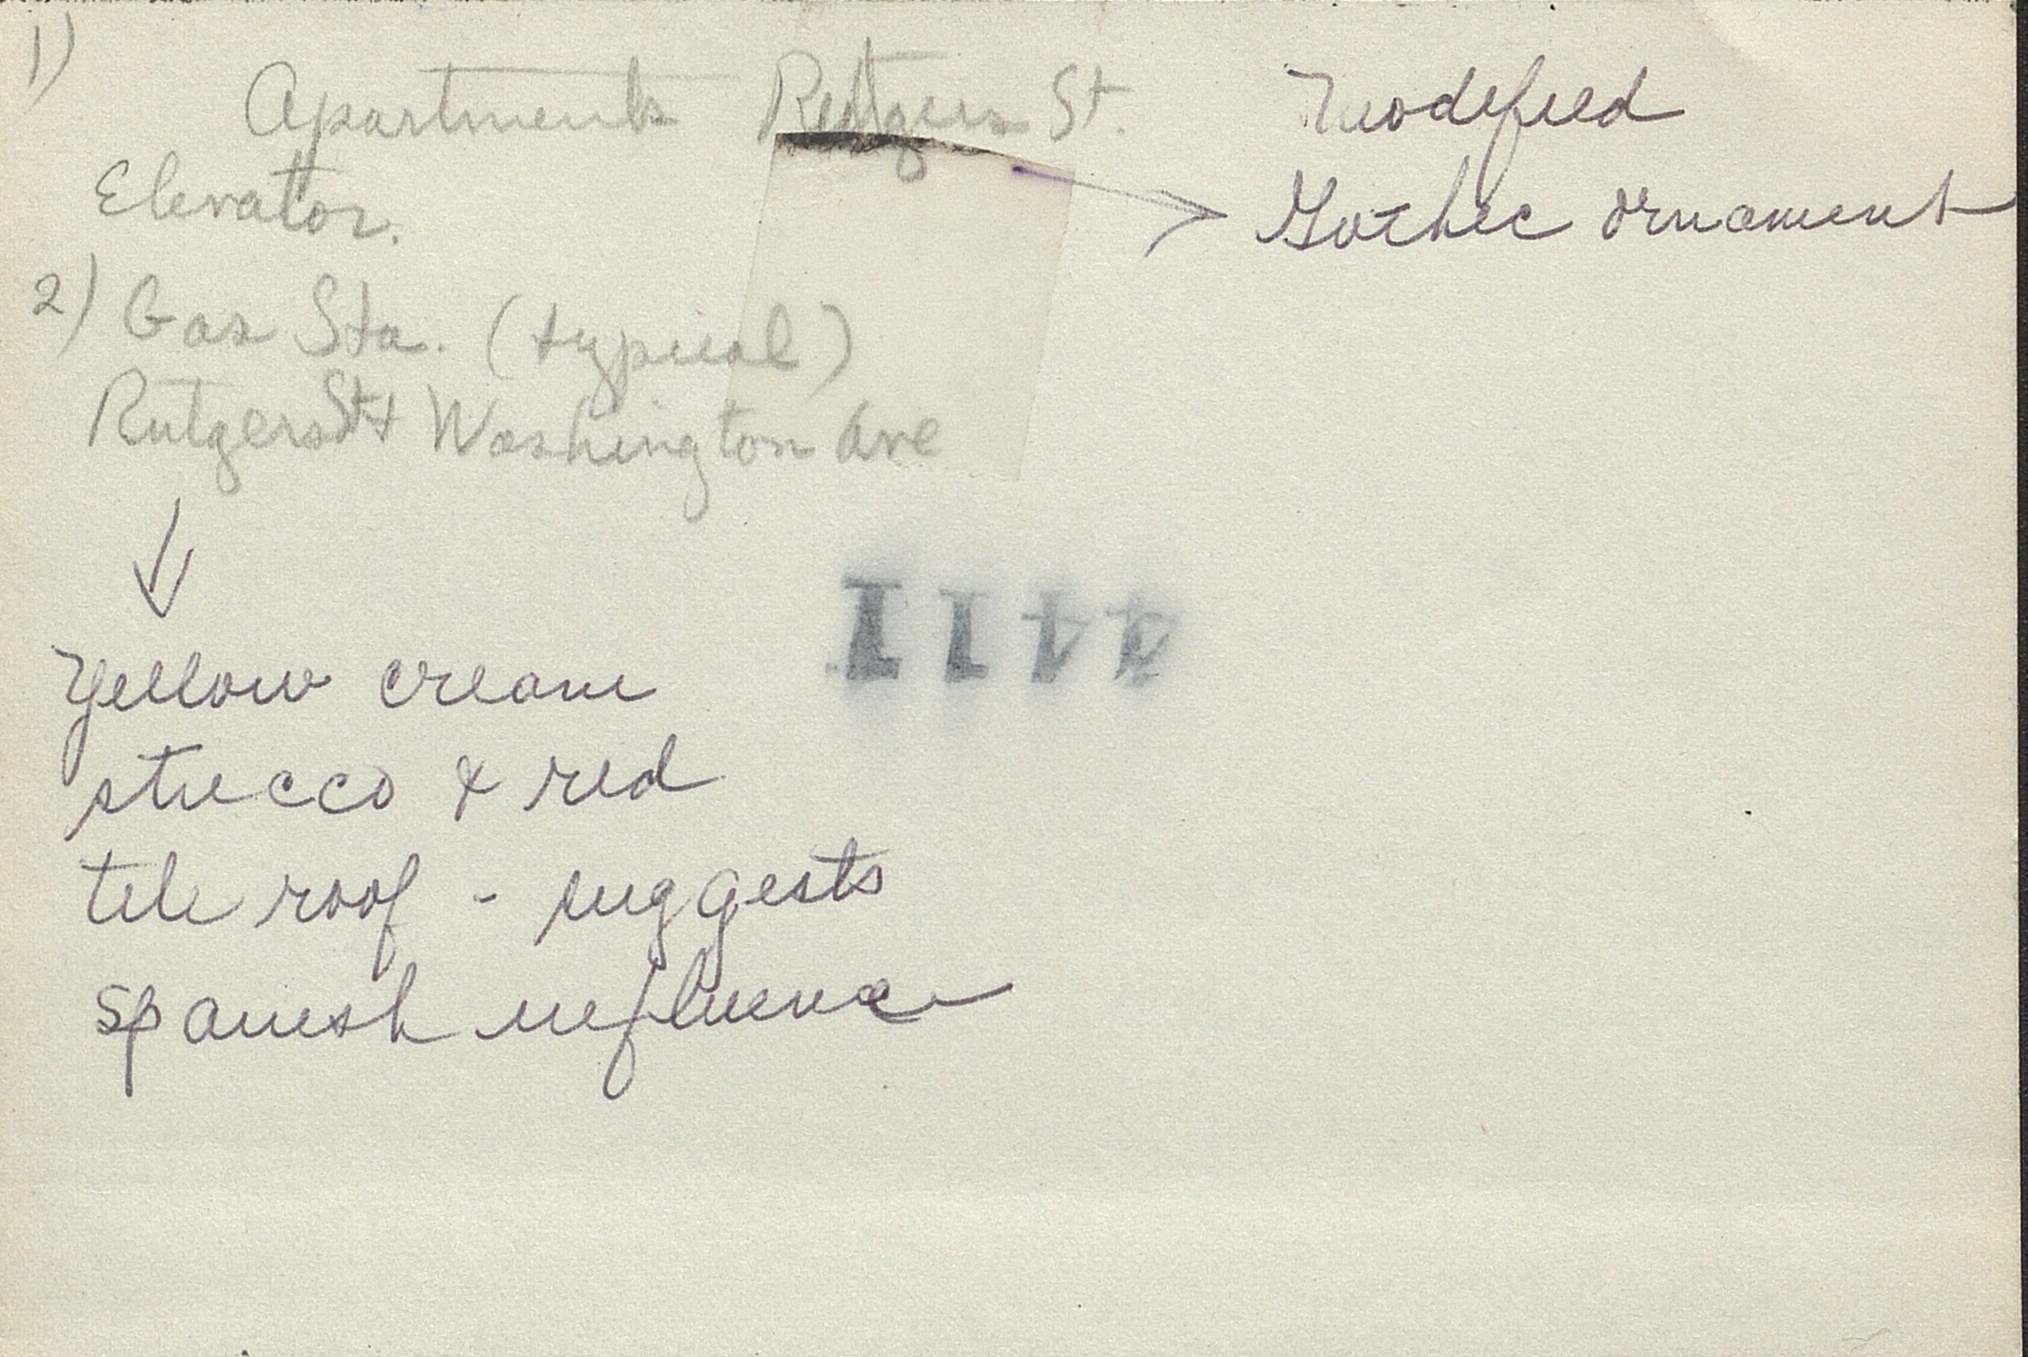 1)
Apartments Rutgers St.
Elevator.
Modified
Gothic ornament
2) Gas Sta. (typical)
Rutgers St & Washington Ave
Yellow cream
stucco & red
tile roof - suggests
Spanish influence